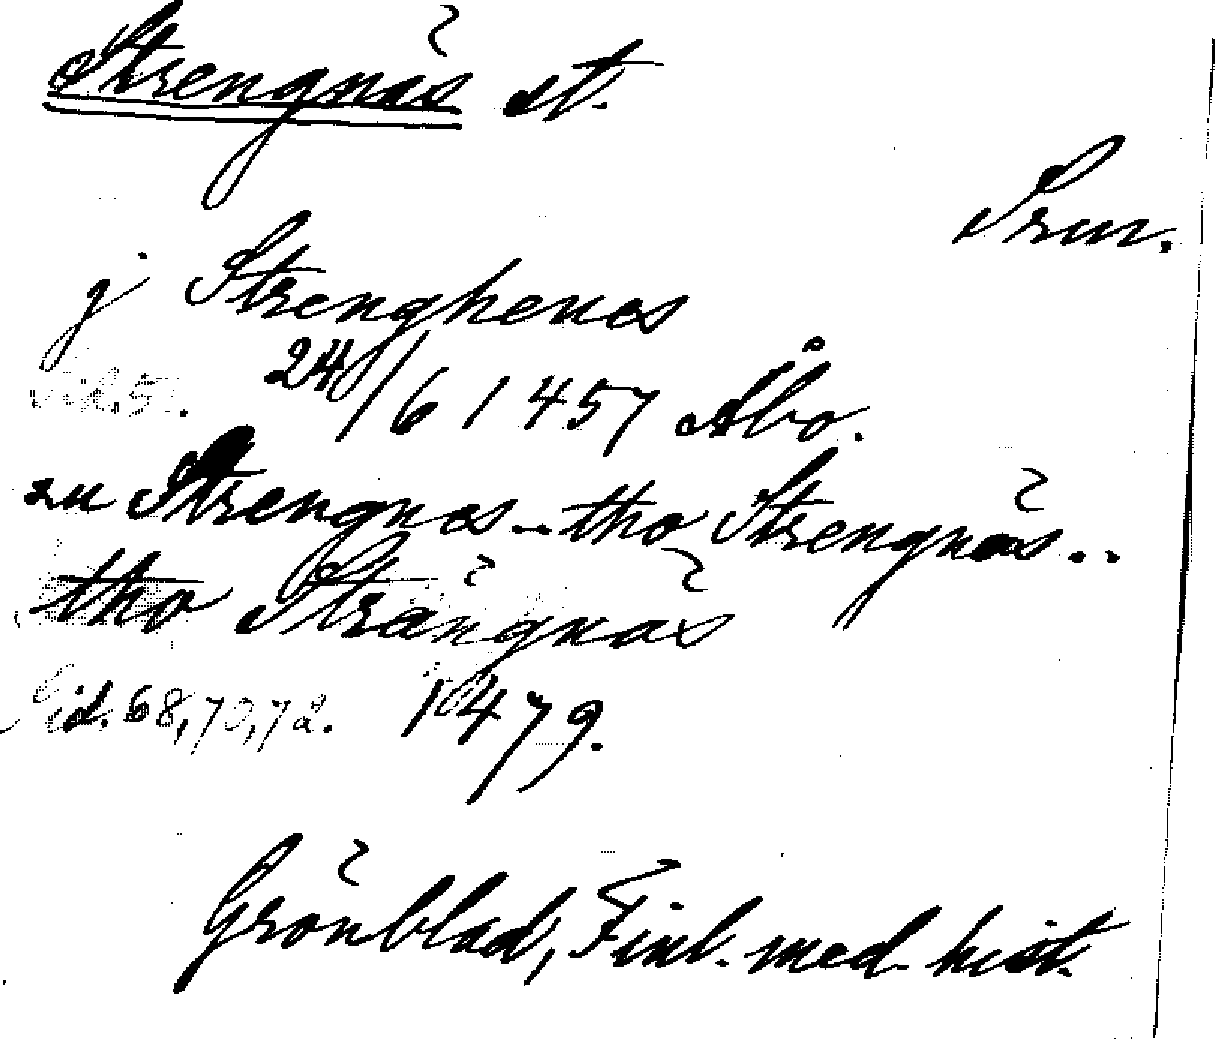 Strengnäs st.
Srm.
j Strenghenes
sid. 51. 24/6 1457 Åbo.
zu Strengnes.. tho Strengnäs..
tho Strängnäs
Sid. 68, 70, 72. 1479.
Grönblad, Finl. med. hist.